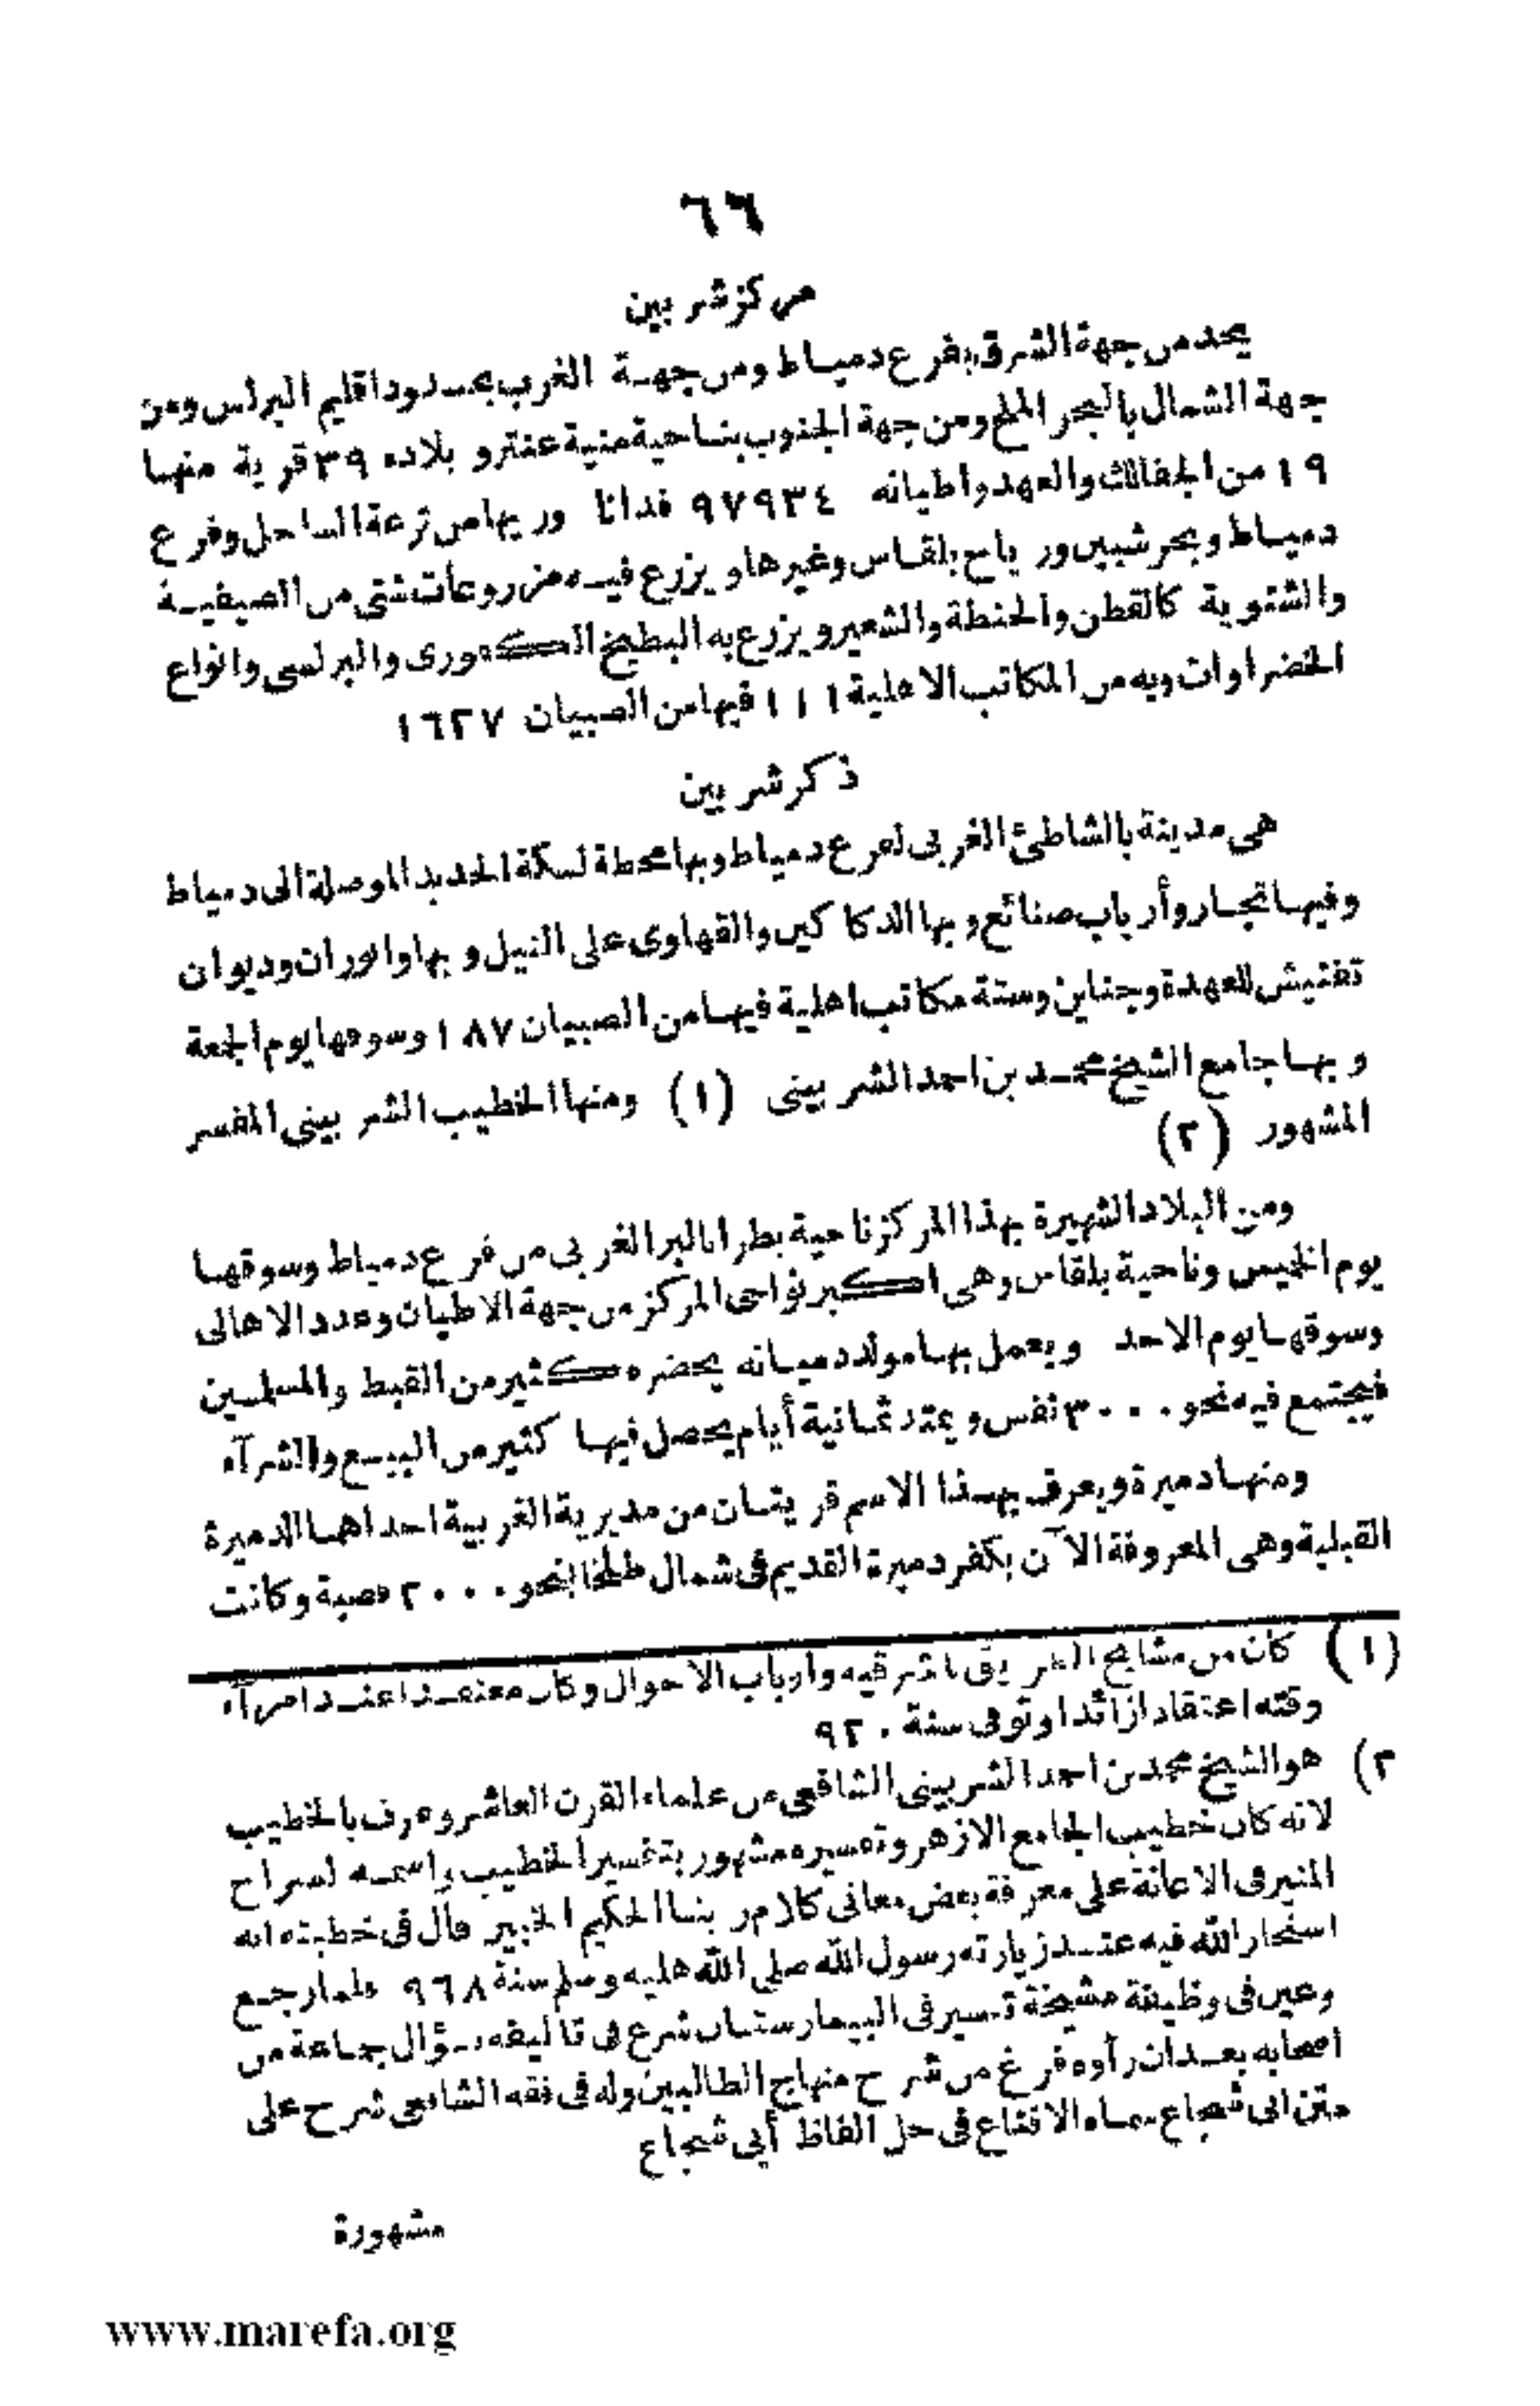 ٦٦
مركز شربين
يحد من جهة الشرق بفرع دمياط ومن جهة الغرب بحدود اقليم البرلس ومن
جهة الشمال بالبحر الملح ومن جهة الجنوب بناحية منية عنتر و بلاده ٣٩ قرية منها
١٩ من الجفالك والعهد واطيانه ٩٧٩٣٤ فدانا وريها من ترعة الساحل وفرع
دمياط وبحر شبين ورياح بلقاس وغيرها ويزرع فيه مزروعات شتى من الصيفية
والشتوية كالقطن والحنطة والشعير ويزرع به البطيخ والبرلسى وانواع
الخضراوات وبه من المكاتب الاهلية ١١١ فيها من الصبيان ١٦٢٧
ذكر شربين
هى مدينة بالشاطئ الغربى لفرع دمياط وبها محطة لسكة الحديد الموصلة الى دمياط
وفيها تجار وأرباب صنائع وبها الدكاكين والقهاوى على النيل وبها وابورات وديوان
تفتيش للعهدة وجناين وستة مكاتب اهلية فيها من الصبيان ١٨٧ وسوقها يوم الجمعة
وبها جامع الشيخ محمد بن احمد الشربينى (١) ومنها الخطيب الشربينى المفسر
المشهور (٢)
ومن البلاد الشهيرة بهذا المركز ناحية بطرا بالبر الغربى من فرع دمياط وسوقها
يوم الخميس وناحية بلقاس وهى اكبر نواحى المركز من جهة الاطيان وعدد الاهالى
وسوقها يوم الاحد ويعمل بها مولد دميانه يحضره كثير من القبط والمسلمين
فيجتمع فيه نحو ٣٠٠٠ نفس ويمتد ثمانية أيام يحصل فيها كثير من البيع والشرآء
ومنها دميرة ويعرف بهذا الاسم قريتان من مديرية الغربية احداهما الدميرة
القبلية وهى المعروفة الآن بكفر دميرة القديم فى شمال طلخا بنحو ٢٠٠٠ قصبة وكانت
(١) كان من مشايخ الطريق بالشرقيه وارباب الاحوال وكان معتقدا عند امرآء
وقته اعتقادا زائدا وتوفى سنة ٩٢٠
٢) هو الشيخ محمد بن احمد الشربينى الشافعى من علماء القرن العاشر وعرف بالخطيب
لانه كان خطيب الجامع الازهر وتفسيره مشهور بتفسير الخطيب واسمه لسراج
المنير فى الاعانة على معرفة بعض معانى كلام ربنا الحكيم الخبير قال فى خطبته انه
استخار الله فيه عند زيارته رسول الله صلى الله عليه وسلم سنة ٩٦٨ فلما رجع
وعين فى وظيفة مشيخة تفسير فى البيمارستان شرع فى تاليفه بسؤال جماعة من
اصحابه بعد ان رآوه فرغ من شرح منهاج الطالبين وله فى فقه الشافعى شرح على
متن ابى شجاع سماه الاقناع فى حل الفاظ أبى شجاع
مشهورة
www.marefa.org